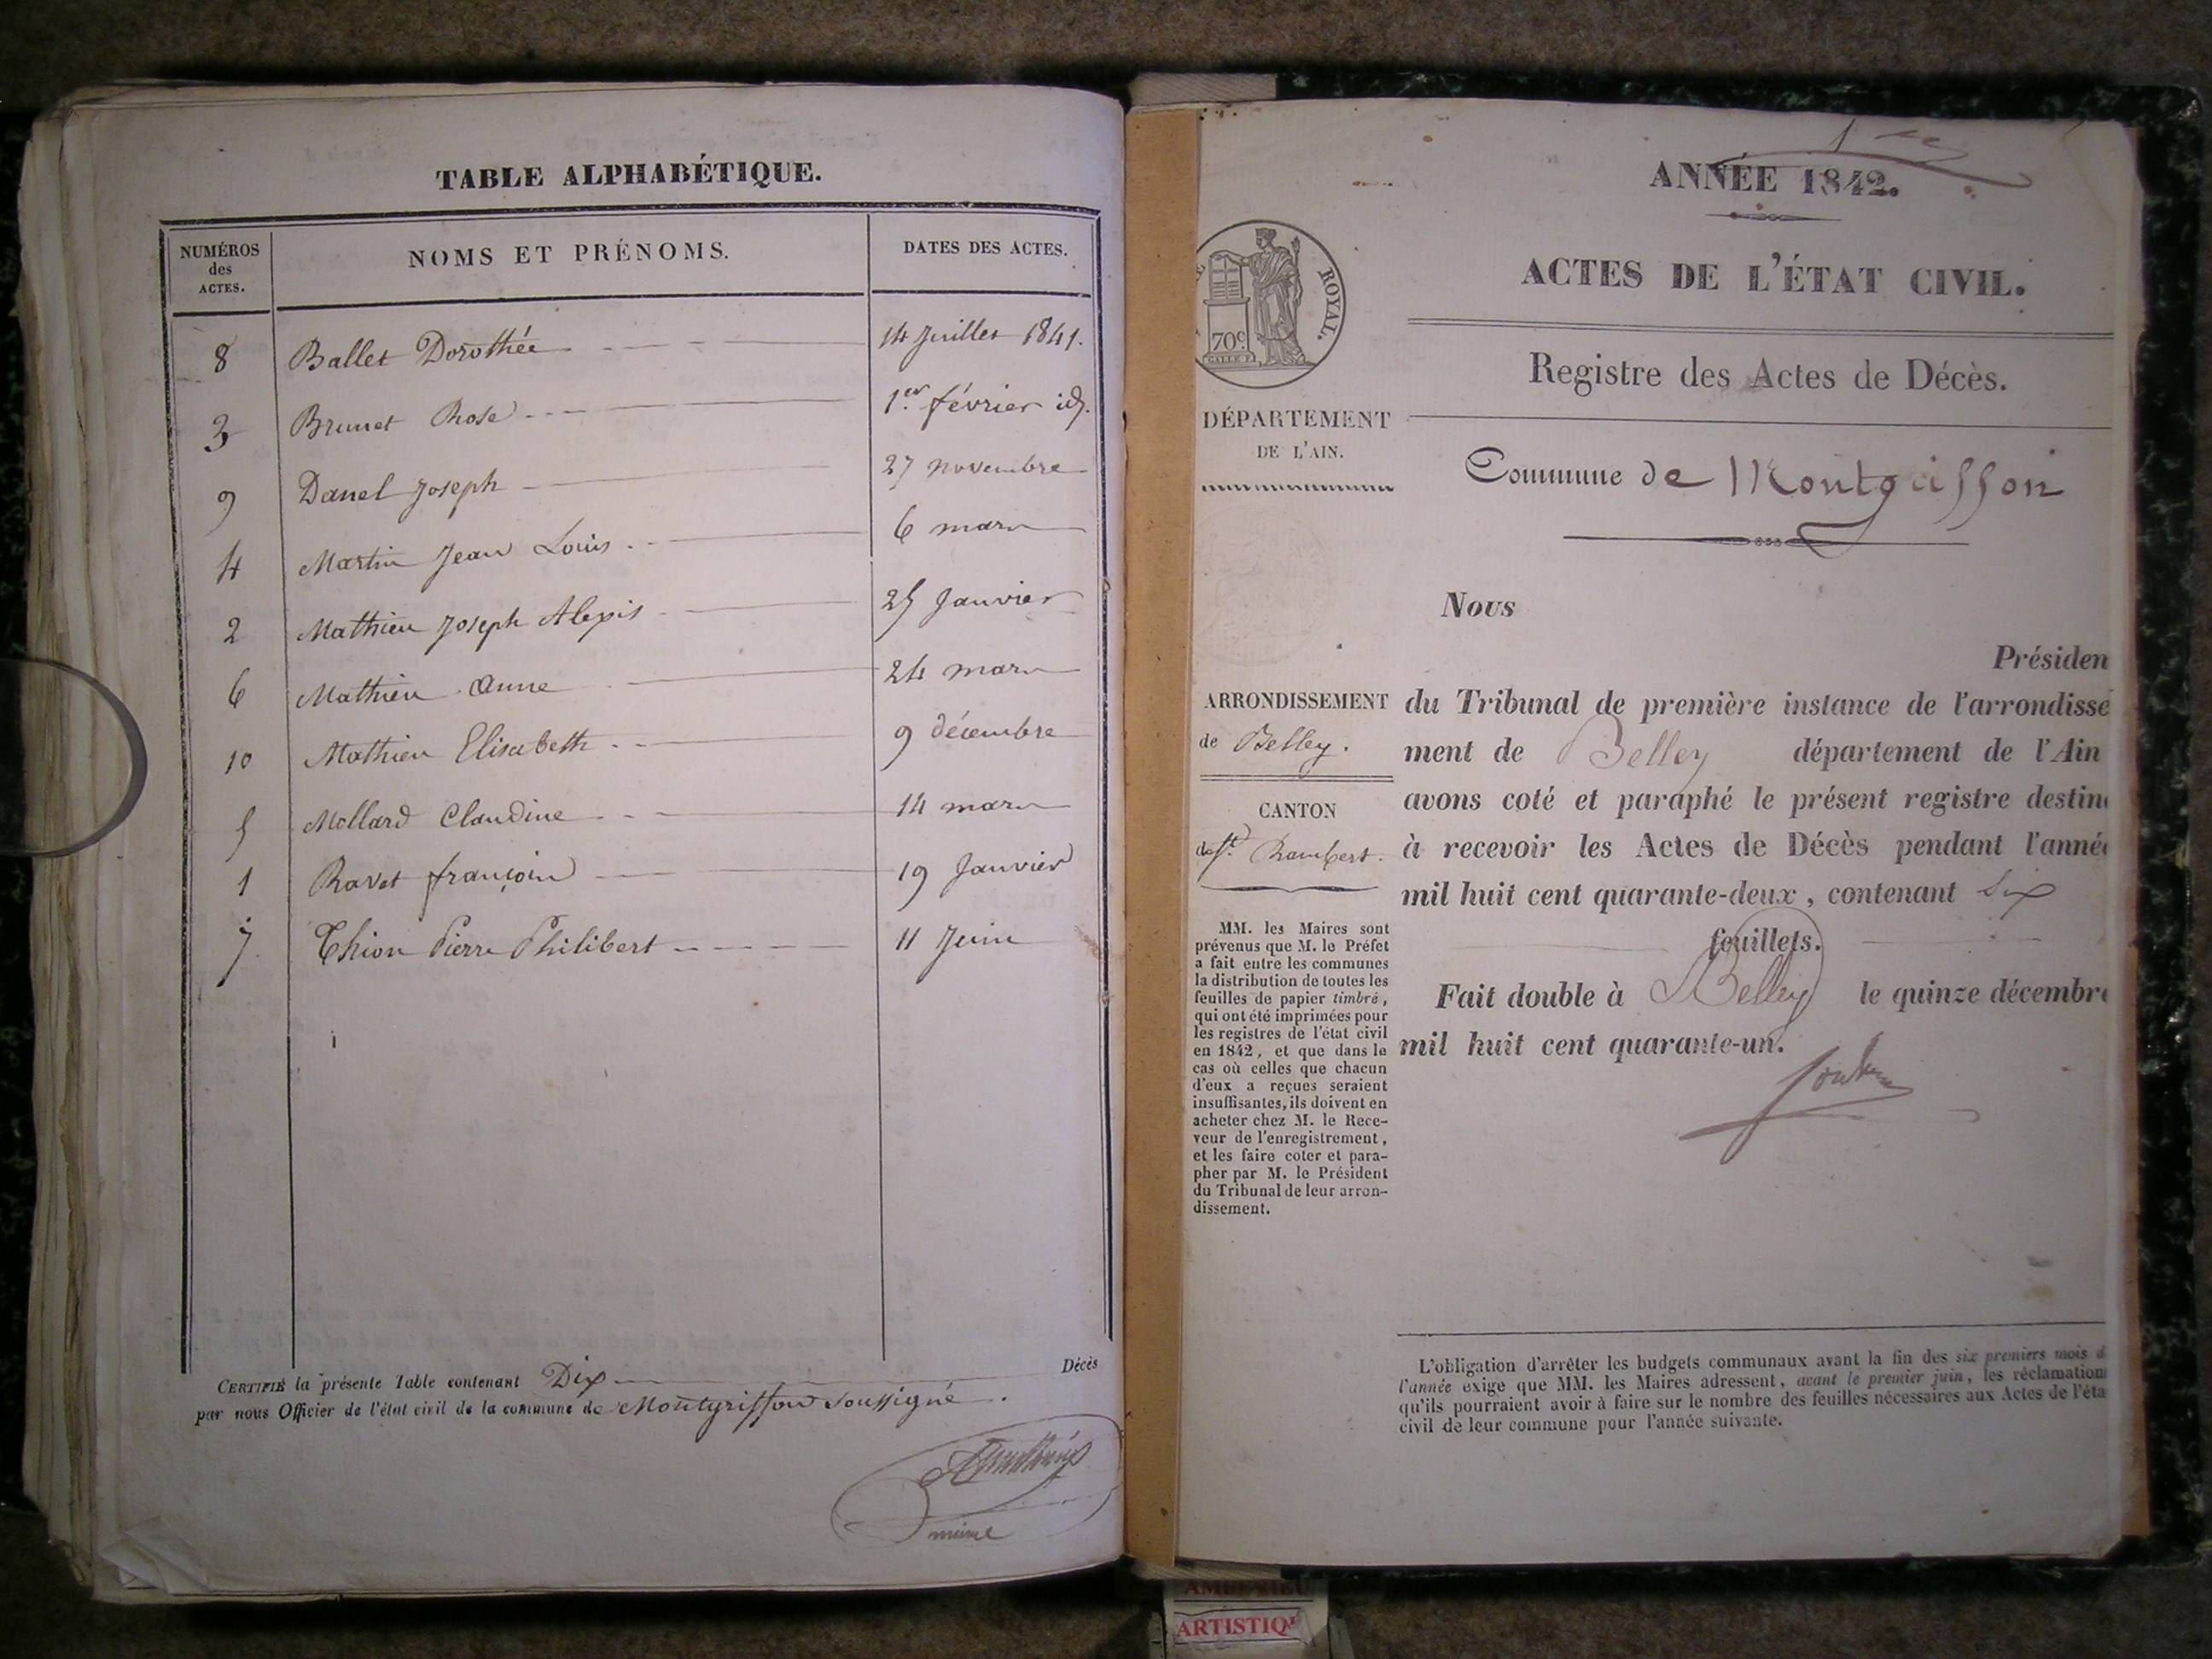 TABLE ALPHABÉTIQUE.
NUMÉROS des ACTES. NOMS ET PRÉNOMS. DATES DES ACTES.
8 Ballet Dorothée 14 Juillet 1841.
3 Brunet Rose 1.er février id.
9 Danel Joseph 27 novembre
4 Martin Jean Louis 6 mars
2 Mathieu Joseph Alexis 25 Janvier
6 Mathieu Anne 24 mars
10 Mathieu Elisabeth 9 décembre
5 Mollard Claudine 14 mars
1 Ravet françois 19 Janvier
7 Thion Pierre Philibert 11 Juin
CERTIFIÉ la présente Table contenant Dix Décès
par nous Officier de l'état civil de la commune de Montgriffon soussigné.
ANNÉE 1842.
ACTES DE L'ÉTAT CIVIL.
Registre des Actes de Décès.
ROYAL.
70c.
DÉPARTEMENT
DE L'AIN.
Commune de Montgriffon
Nous
Présiden
ARRONDISSEMENT
de Belley.
CANTON
de St. Rambert.
du Tribunal de première instance de l'arrondisse
ment de Belley département de l'Ain
avons coté et paraphé le présent registre destin
à recevoir les Actes de Décès pendant l'année
mil huit cent quarante-deux, contenant Six
feuillets.
Fait double à Belley le quinze décembre
mil huit cent quarante-un.
MM. les Maires sont
prévenus que M. le Préfet
a fait entre les communes
la distribution de toutes les
feuilles de papier timbré,
qui ont été imprimées pour
les registres de l'état civil
en 1842, et que dans le
cas où celles que chacun
d'eux a reçues seraient
insuffisantes, ils doivent en
acheter chez M. le Rece-
veur de l'enregistrement,
et les faire coter et para-
pher par M. le Président
du Tribunal de leur arron-
dissement.
L'obligation d'arrêter les budgets communaux avant la fin des six premiers mois d
l'année exige que MM. les Maires adressent, avant le premier juin, les réclamation
qu'ils pourraient avoir à faire sur le nombre des feuilles nécessaires aux Actes de l'éta
civil de leur commune pour l'année suivante.
ARTISTIQ